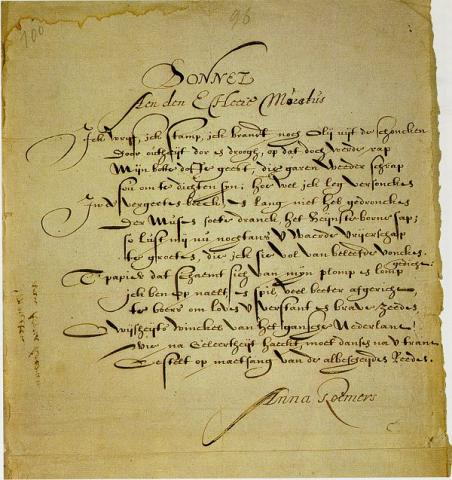 100
96
SONNET
Aen den E Heere Morætus
Ick vrijf, ick stamp, ick brandt noch Olij uijt de schoncken
Door outheijt dor en droogh, op dat doch werde rap
Mijn botte geest, die garen weeder schrap
sou om te dichten sijn; hoe wel ick leg versoncken
In de vergeeten beeck, en lang niet heb gedroncken
Der Musen soete dranck het borne sap;
so lust mij nu nochtans V Waerde vrijerschap
te groeten, die ick sie vol van beleefde voncken.
T papier dat schaemt sich van mijn plomp en lomp gedicht.
ick ben op naelt, en spil, veel beeter afgericht,
te boers om loven V verstant en brave zeeden.
O wijsheijts winckel van het gansche Nederlant!
wie na Geleertheijt haeckt, moet dansen na V trant
Gestelt op maetsang van de albescheijden Reeden.
Anna Roemers